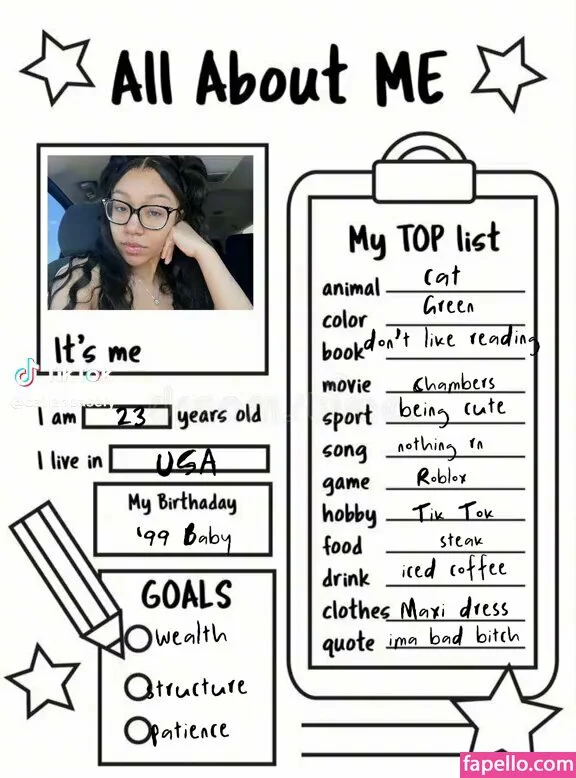 All About ME
It's me
TikTok
I am 23 years old
I live in USA
My Birthaday
'99 Baby
GOALS
wealth
structure
patience
My TOP list
animal cat
color Green
book don't like reading
movie chambers
sport being cute
song nothing rn
game Roblox
hobby Tik Tok
food steak
drink iced coffee
clothes Maxi dress
quote ima bad bitch
fapello.com